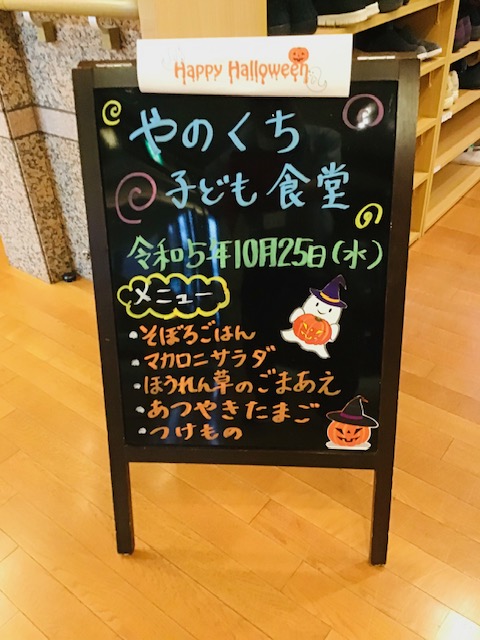 Happy Halloween
やのくち
子ども食堂
令和5年10月25日(水)
メニュー
・そぼろごはん
・マカロニサラダ
・ほうれん草のごまあえ
・あつやきたまご
・つけもの